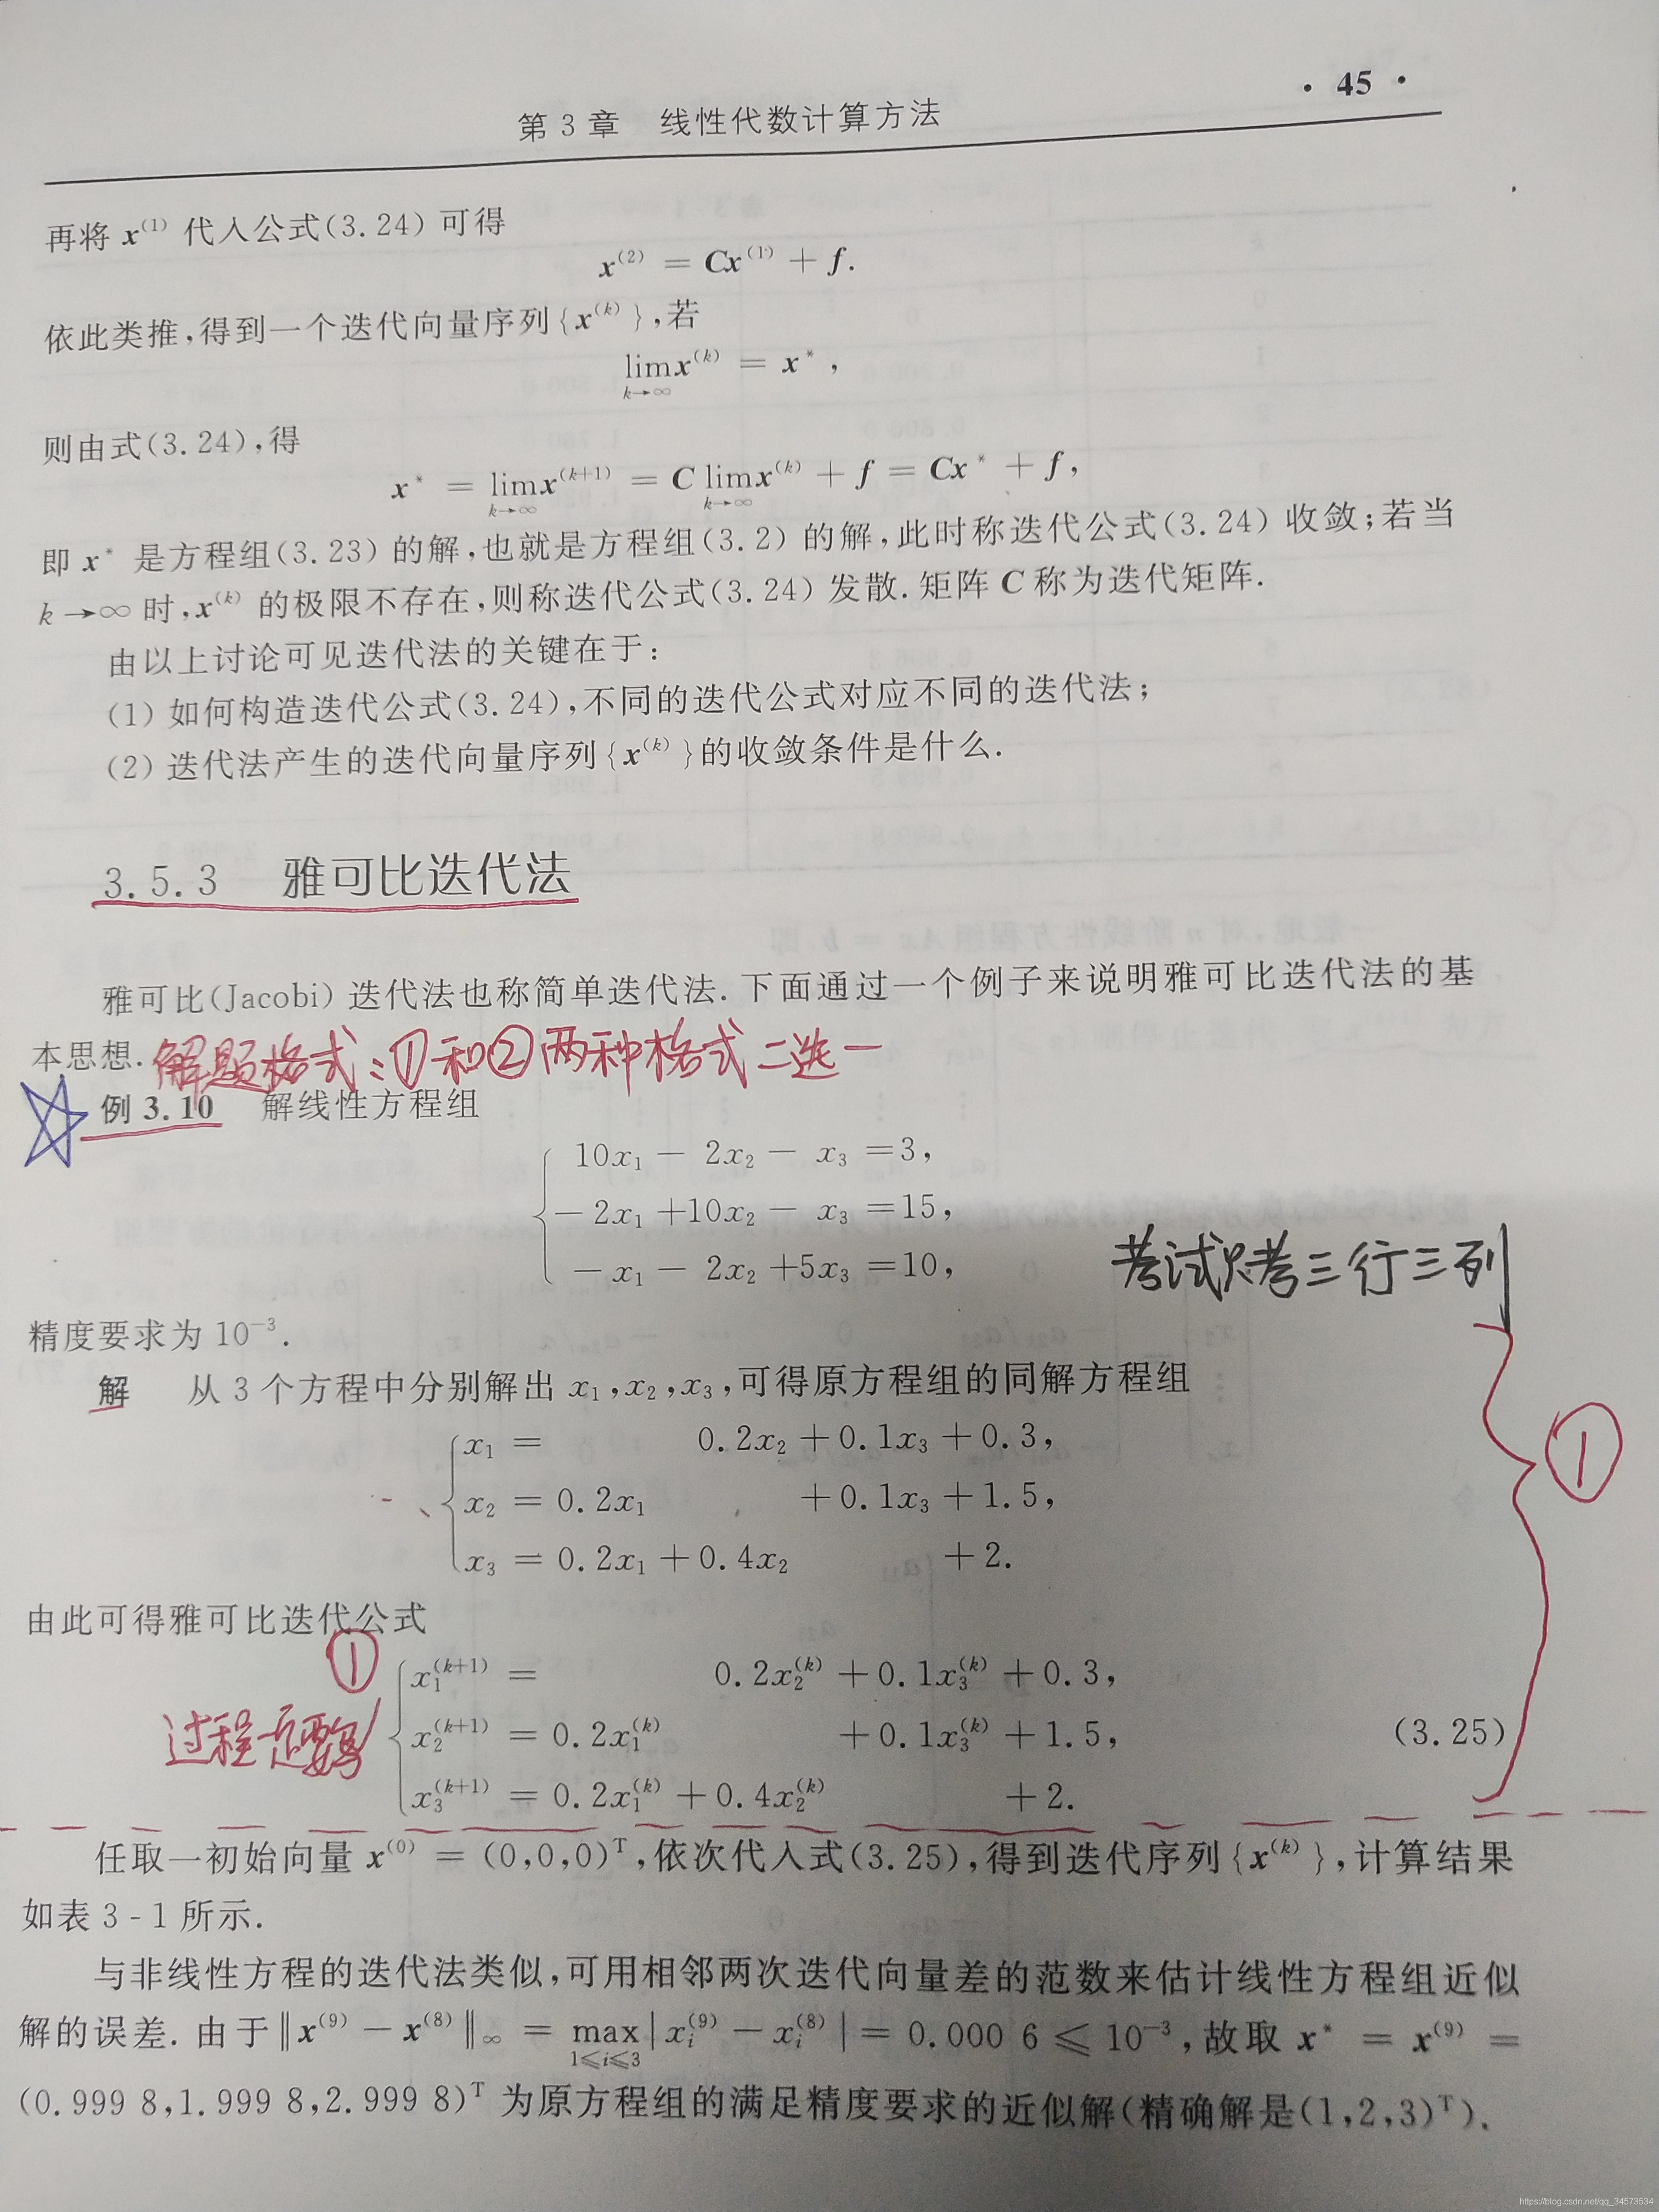 · 45 ·
第 3 章 线性代数计算方法
再将 x⁽¹⁾ 代入公式(3.24)可得
x⁽²⁾ = Cx⁽¹⁾ + f.
依此类推,得到一个迭代向量序列{x⁽ᵏ⁾},若
lim x⁽ᵏ⁾ = x*,
k→∞
则由式(3.24),得
x* = lim x⁽ᵏ⁺¹⁾ = C lim x⁽ᵏ⁾ + f = Cx* + f,
k→∞ k→∞
即 x* 是方程组(3.23)的解,也就是方程组(3.2)的解,此时称迭代公式(3.24)收敛;若当
k→∞时,x⁽ᵏ⁾ 的极限不存在,则称迭代公式(3.24)发散.矩阵 C 称为迭代矩阵.
由以上讨论可见迭代法的关键在于:
(1) 如何构造迭代公式(3.24),不同的迭代公式对应不同的迭代法;
(2) 迭代法产生的迭代向量序列{x⁽ᵏ⁾}的收敛条件是什么.
3.5.3 雅可比迭代法
雅可比(Jacobi)迭代法也称简单迭代法.下面通过一个例子来说明雅可比迭代法的基
本思想. 解题格式:①和②两种格式二选一
例 3.10 解线性方程组
10x₁ − 2x₂ − x₃ =3,
− 2x₁ +10x₂ − x₃ =15,
− x₁ − 2x₂ +5x₃ =10,
考试只考三行三列
精度要求为 10⁻³.
解 从 3 个方程中分别解出 x₁,x₂,x₃,可得原方程组的同解方程组
x₁ = 0.2x₂ + 0.1x₃ + 0.3,
x₂ = 0.2x₁ + 0.1x₃ + 1.5,
x₃ = 0.2x₁ + 0.4x₂ + 2.
①
由此可得雅可比迭代公式
①
x₁⁽ᵏ⁺¹⁾ = 0.2x₂⁽ᵏ⁾ + 0.1x₃⁽ᵏ⁾ + 0.3,
x₂⁽ᵏ⁺¹⁾ = 0.2x₁⁽ᵏ⁾ + 0.1x₃⁽ᵏ⁾ + 1.5, (3.25)
x₃⁽ᵏ⁺¹⁾ = 0.2x₁⁽ᵏ⁾ + 0.4x₂⁽ᵏ⁾ + 2.
过程一定要写
任取一初始向量 x⁽⁰⁾ = (0,0,0)ᵀ,依次代入式(3.25),得到迭代序列{x⁽ᵏ⁾},计算结果
如表 3-1 所示.
与非线性方程的迭代法类似,可用相邻两次迭代向量差的范数来估计线性方程组近似
解的误差. 由于‖x⁽⁹⁾ − x⁽⁸⁾‖∞ = max|xᵢ⁽⁹⁾ − xᵢ⁽⁸⁾| = 0.000 6 ⩽ 10⁻³,故取 x* = x⁽⁹⁾ =
1⩽i⩽3
(0.999 8,1.999 8,2.999 8)ᵀ 为原方程组的满足精度要求的近似解(精确解是(1,2,3)ᵀ).
https://blog.csdn.net/qq_34573534